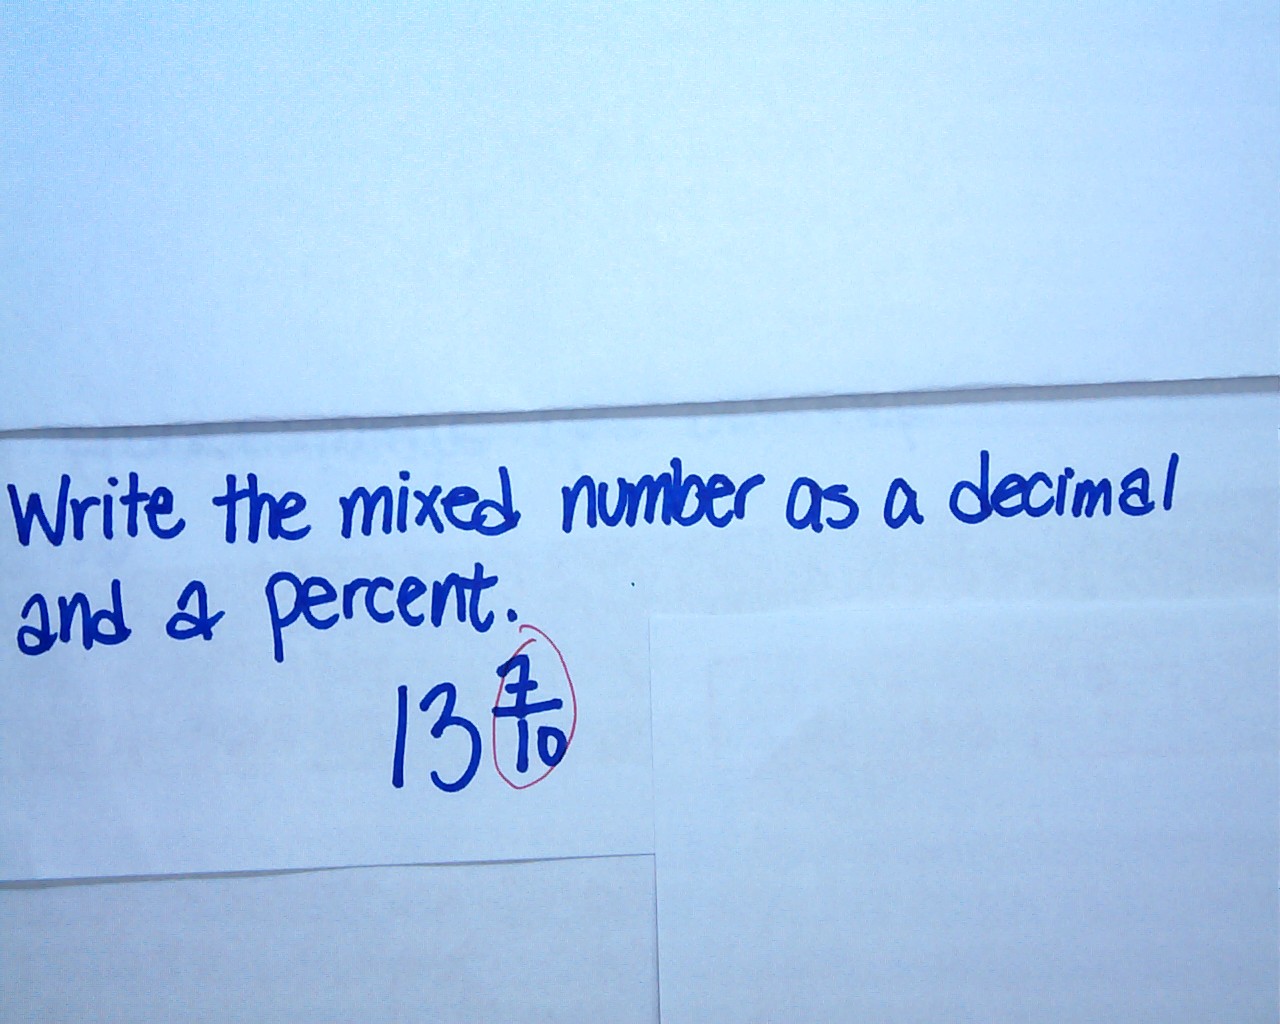 Write the mixed number as a decimal
and a percent.
13 7/10